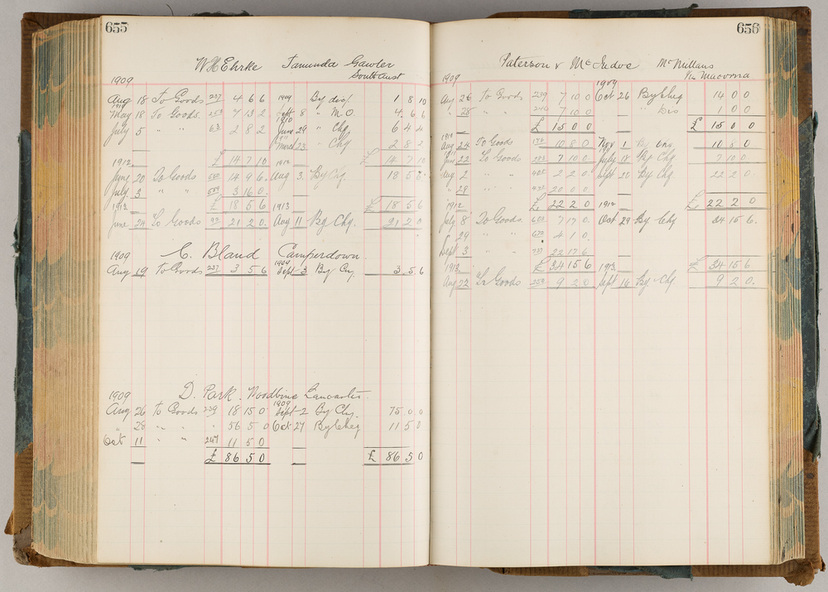 655
W H Ehrke Tanunda Gawler
South Aust
1909
Aug 18 To Goods 227 4 6 6 1909 By dis/ 1 8 10
May 18 To Goods 4 13 2 Sept 8 " M.O. 4 6 6
July 5 " " 63 2 8 2 June 29 " Chq 6 4 4
March 23 " Chq 2 8 2
1912 £ 14 7 10 £ 14 7 10
June 20 To Goods 14 9 6 Aug 3 By Chq 18 5 6
July 3 " " 3 16 0
1912 £ 18 5 6 1913 £ 18 5 6
June 24 To Goods 21 2 0 Aug 11 By Chq 21 2 0
1909 C. Bland Camperdown
Aug 19 To Goods 227 3 5 6 1909 Sept 3 By Chq 3 5 6
1909 D. Park Woodbine Lancaster
Aug 26 To Goods 229 18 15 0 1909 Sept 2 By Chq. 75 0 0
" 28 " " " 56 5 0 Oct 27 By Cheq 11 5 0
Oct 11 " " 247 11 5 0
£ 86 5 0 £ 86 5 0
656
Paterson & McIndoe McMillans
Via Macorna
1909
Aug 26 To Goods 229 7 10 0 1909 Oct 26 By Cheq 14 0 0
" 28 " " 7 10 0 " " Dis 1 0 0
£ 15 0 0 £ 15 0 0
Aug 22 To Goods 10 8 0 Nov 1 By 10 8 0
June 22 To Goods 7 10 0 July 19 By Chq 7 10 0
Aug 2 " " 2 2 0 Sept 20 By Chq 22 2 0
" 28 " " 20 0 0
1912 £ 22 2 0 1912 £ 22 2 0
July 8 To Goods 7 17 0 Oct 29 By Chq 34 15 6
" 29 " " 4 1 0
Sept 3 " " 22 17 6
1913 £ 34 15 6 1913 £ 34 15 6
Aug 22 To Goods 9 2 0 Sept 16 By Chq 9 2 0